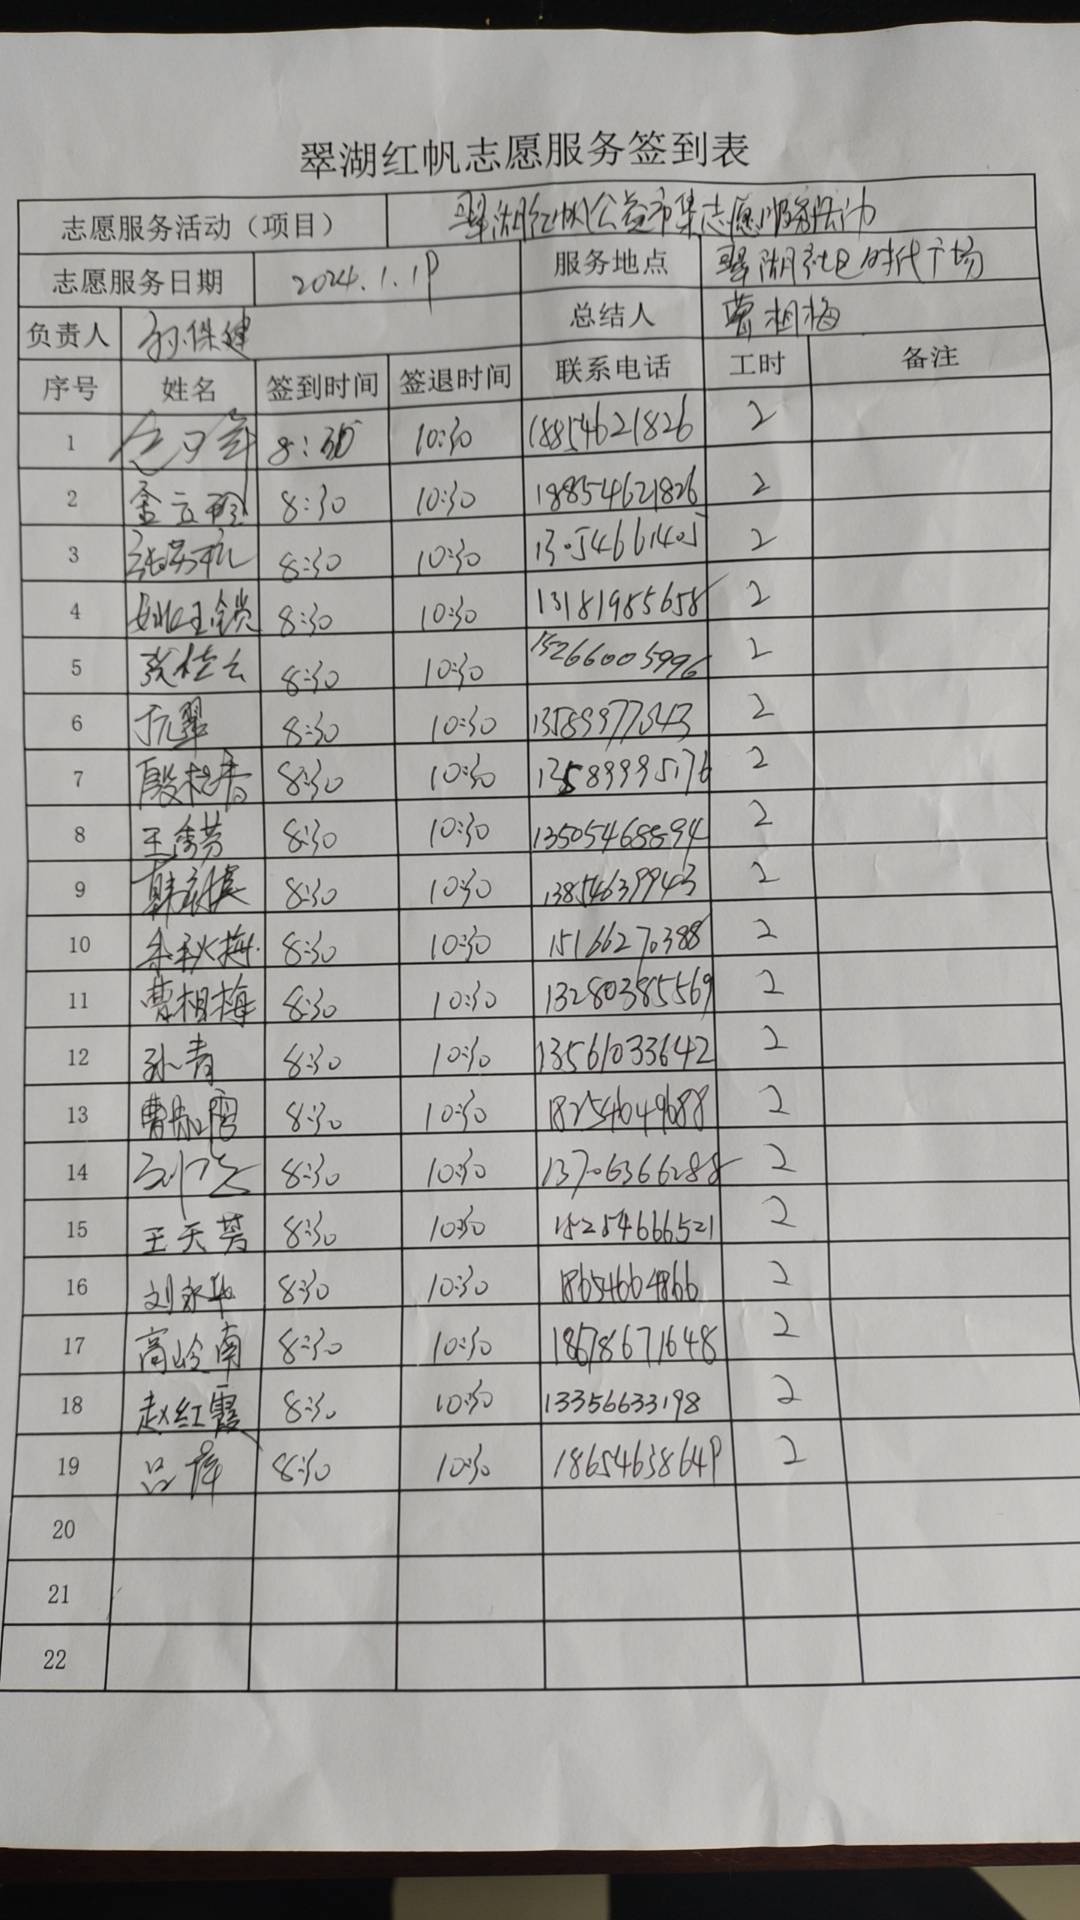 翠湖红帆志愿服务签到表
志愿服务活动（项目） 翠湖红帆公益市集志愿服务活动
志愿服务日期 2024.1.19 服务地点 翠湖社区时代广场
负责人 孙保健 总结人 曹相梅
序号 姓名 签到时间 签退时间 联系电话 工时 备注
1 8:30 10:30 18854621826 2
2 8:30 10:30 18854621826 2
3 8:30 10:30 13054661405 2
4 姚玉锁 8:30 10:30 13181985658 2
5 张桂云 8:30 10:30 15266005996 2
6 8:30 10:30 2
7 殷桂香 8:30 10:30 13589995176 2
8 王秀芳 8:30 10:30 2
9 韩 8:30 10:30 13854639943 2
10 秋梅 8:30 10:30 15166270388 2
11 曹相梅 8:30 10:30 13280385569 2
12 孙青 8:30 10:30 13561033642 2
13 曹 8:30 10:30 18254049688 2
14 8:30 10:30 13706366288 2
15 王天芳 8:30 10:30 15254666521 2
16 刘永华 8:30 10:30 18654604866 2
17 高岭南 8:30 10:30 18678671648 2
18 赵红霞 8:30 10:30 13356633198 2
19 吕萍 8:30 10:30 18654638649 2
20
21
22